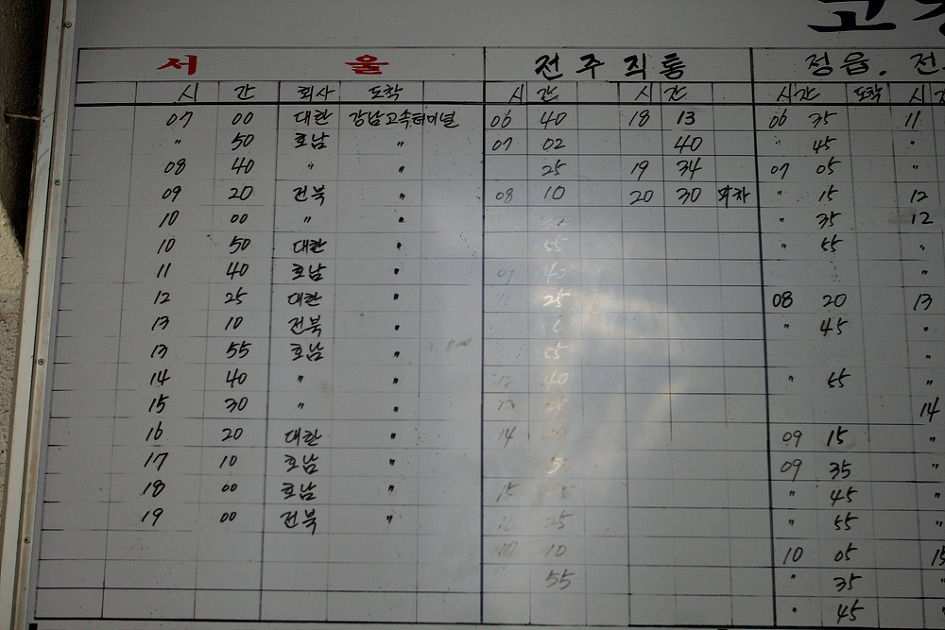 고창
서 울 전주직통 정읍. 전
시 간 회사 도착 시 간 시 간 시간 도착 시
07 00 대한 강남고속터미널 06 40 18 13 06 35 11
" 50 호남 " 07 02 40 " 45 "
08 40 " " 25 19 34 07 05 "
09 20 전북 " 08 10 20 30 막차 " 15 12
10 00 " " " 35 12
10 50 대한 " 55 " 55 "
11 40 호남 " 40 "
12 25 대한 " 25 08 20 13
13 10 전북 " " 45 "
13 55 호남 " 55 "
14 40 " " 12 40 " 55 "
15 30 " " 13 14
16 20 대한 " 14 09 15 "
17 10 호남 " 09 35 "
18 00 호남 " 15 " 45 "
19 00 전북 " 16 25 " 55 "
10 10 05 15
55 " 35 "
" 45 "